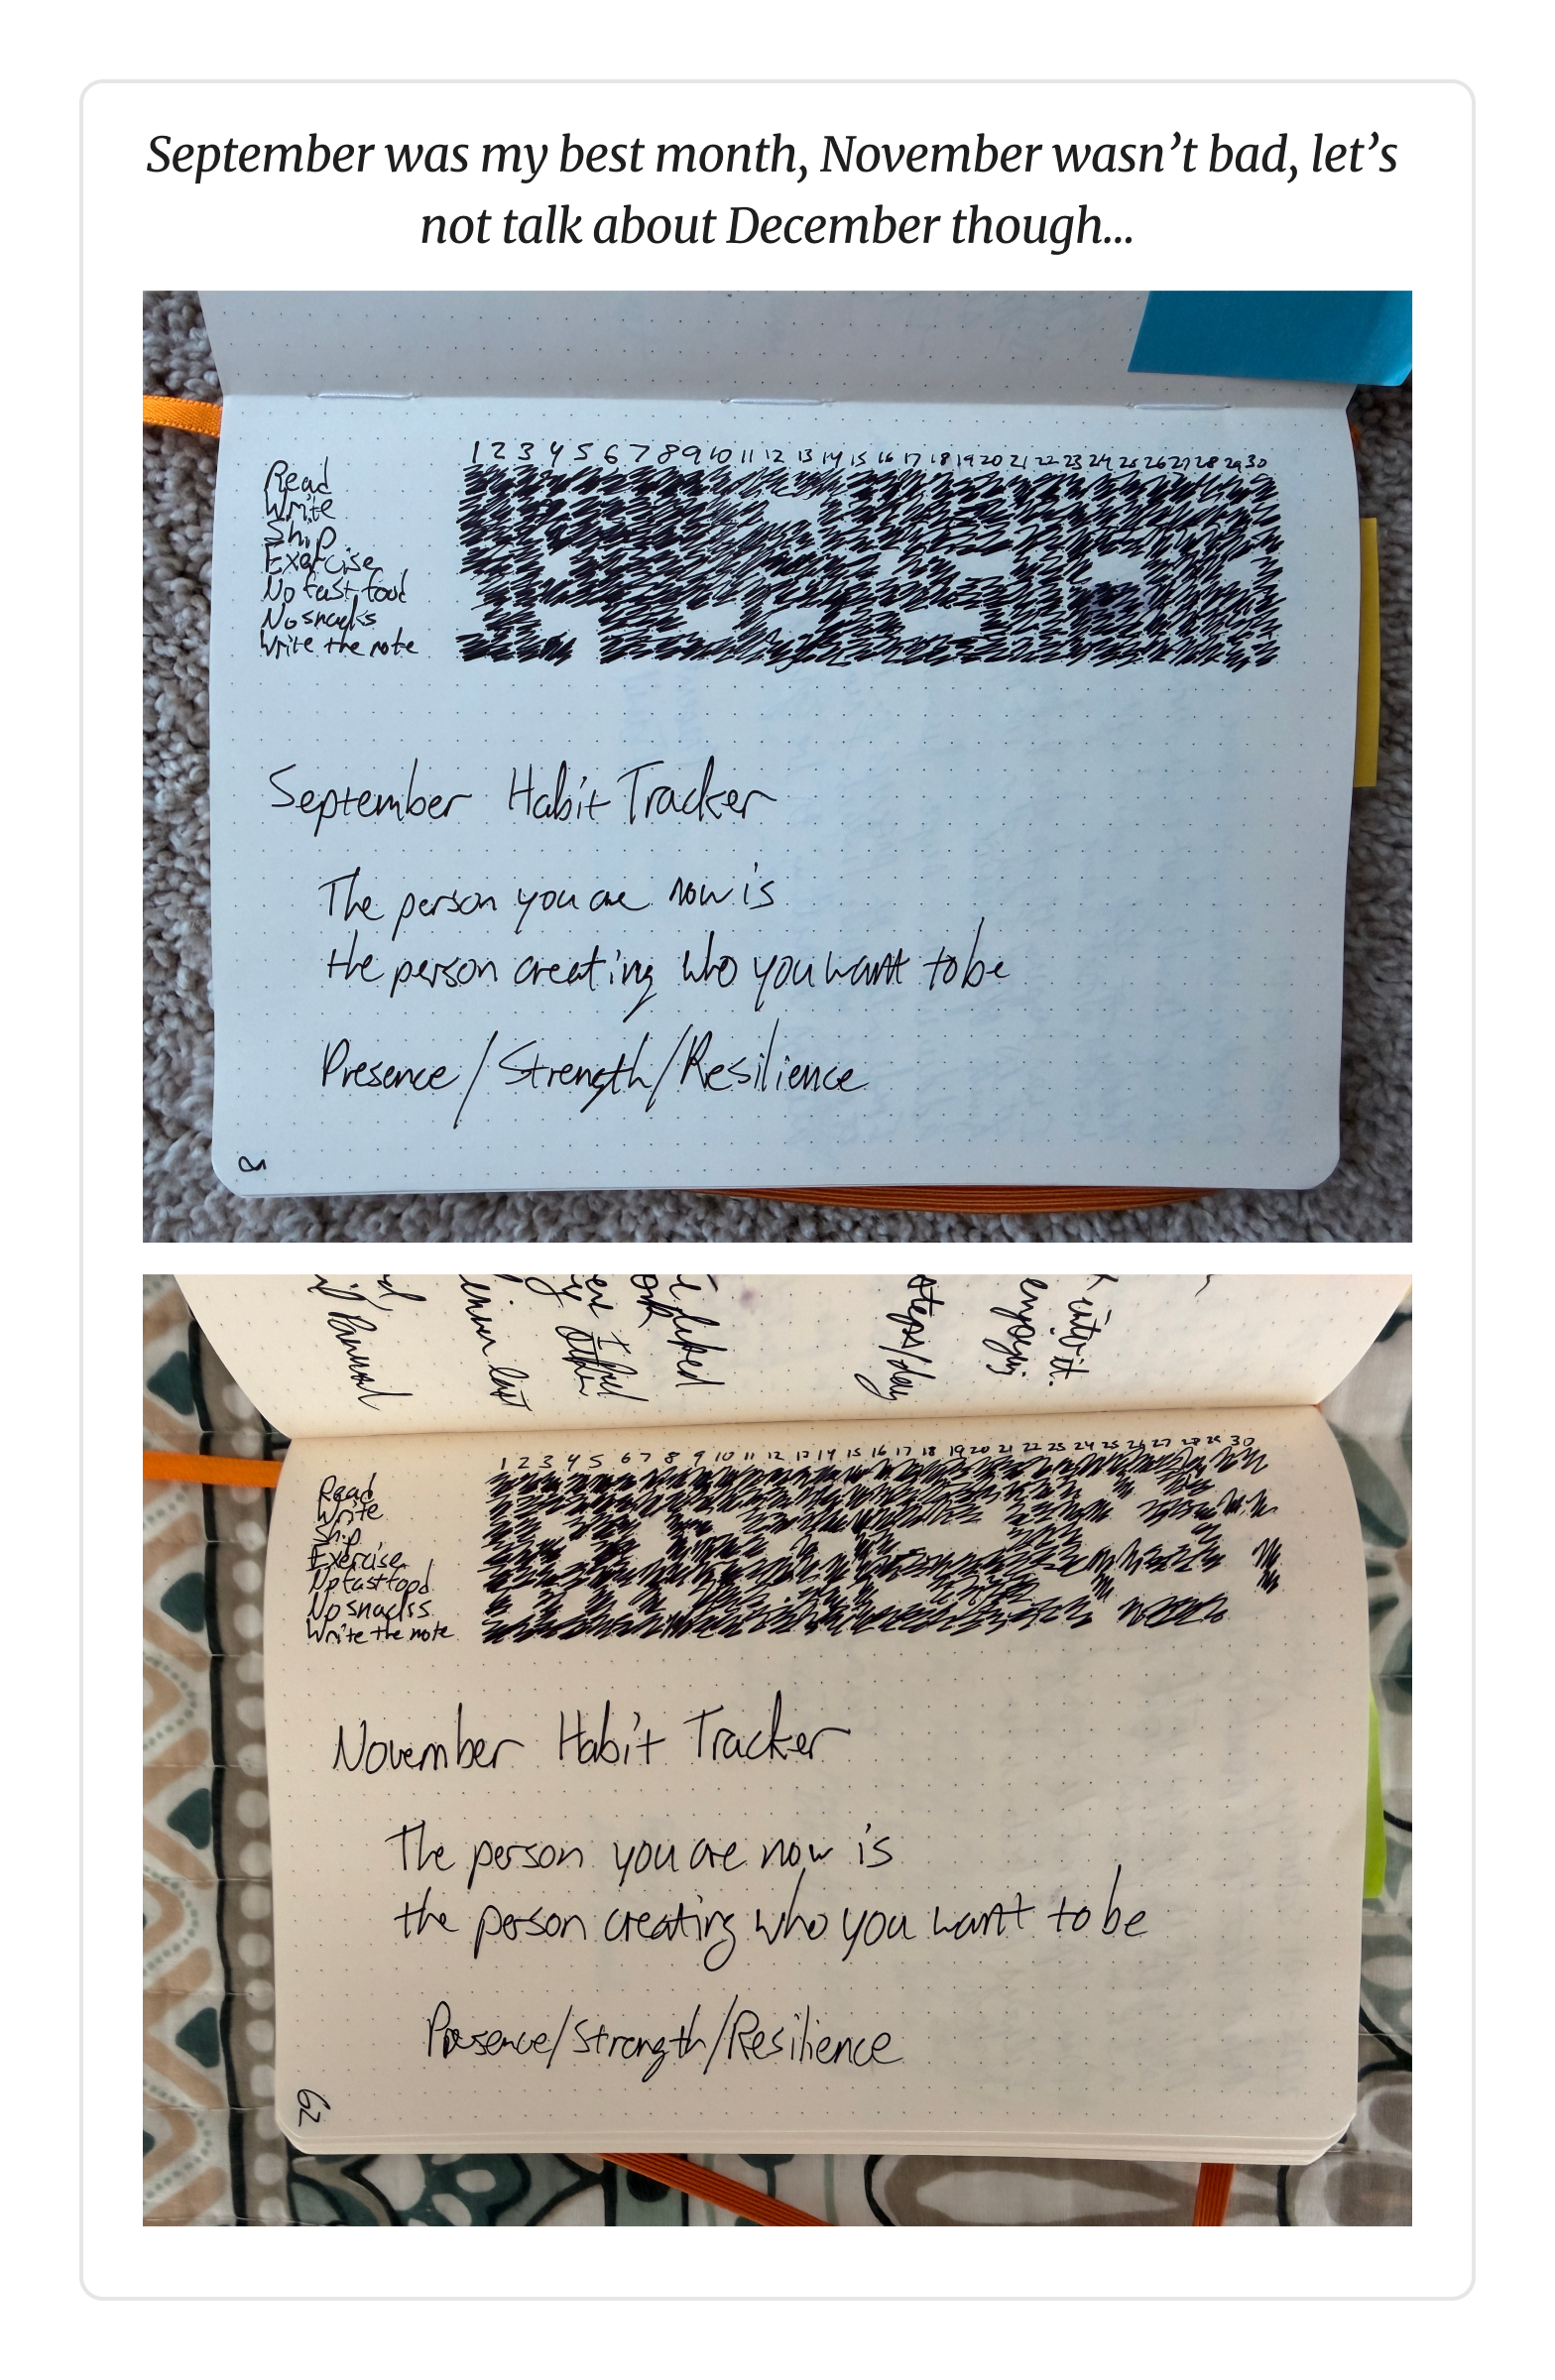 September was my best month, November wasn’t bad, let’s
not talk about December though...
1 2 3 4 5 6 7 8 9 10 11 12 13 14 15 16 17 18 19 20 21 22 23 24 25 26 27 28 29 30
Read
Write
Ship
Exercise
No fast food
No snacks
Write the note
September Habit Tracker
The person you are now is
the person creating who you want to be
Presence/Strength/Resilience
last
liked
steps/day
enjoying
into it.
1 2 3 4 5 6 7 8 9 10 11 12 13 14 15 16 17 18 19 20 21 22 23 24 25 26 27 28 29 30
Read
Write
Ship
Exercise
No fast food
No snacks
Write the note
November Habit Tracker
The person you are now is
the person creating who you want to be
Presence/Strength/Resilience
62